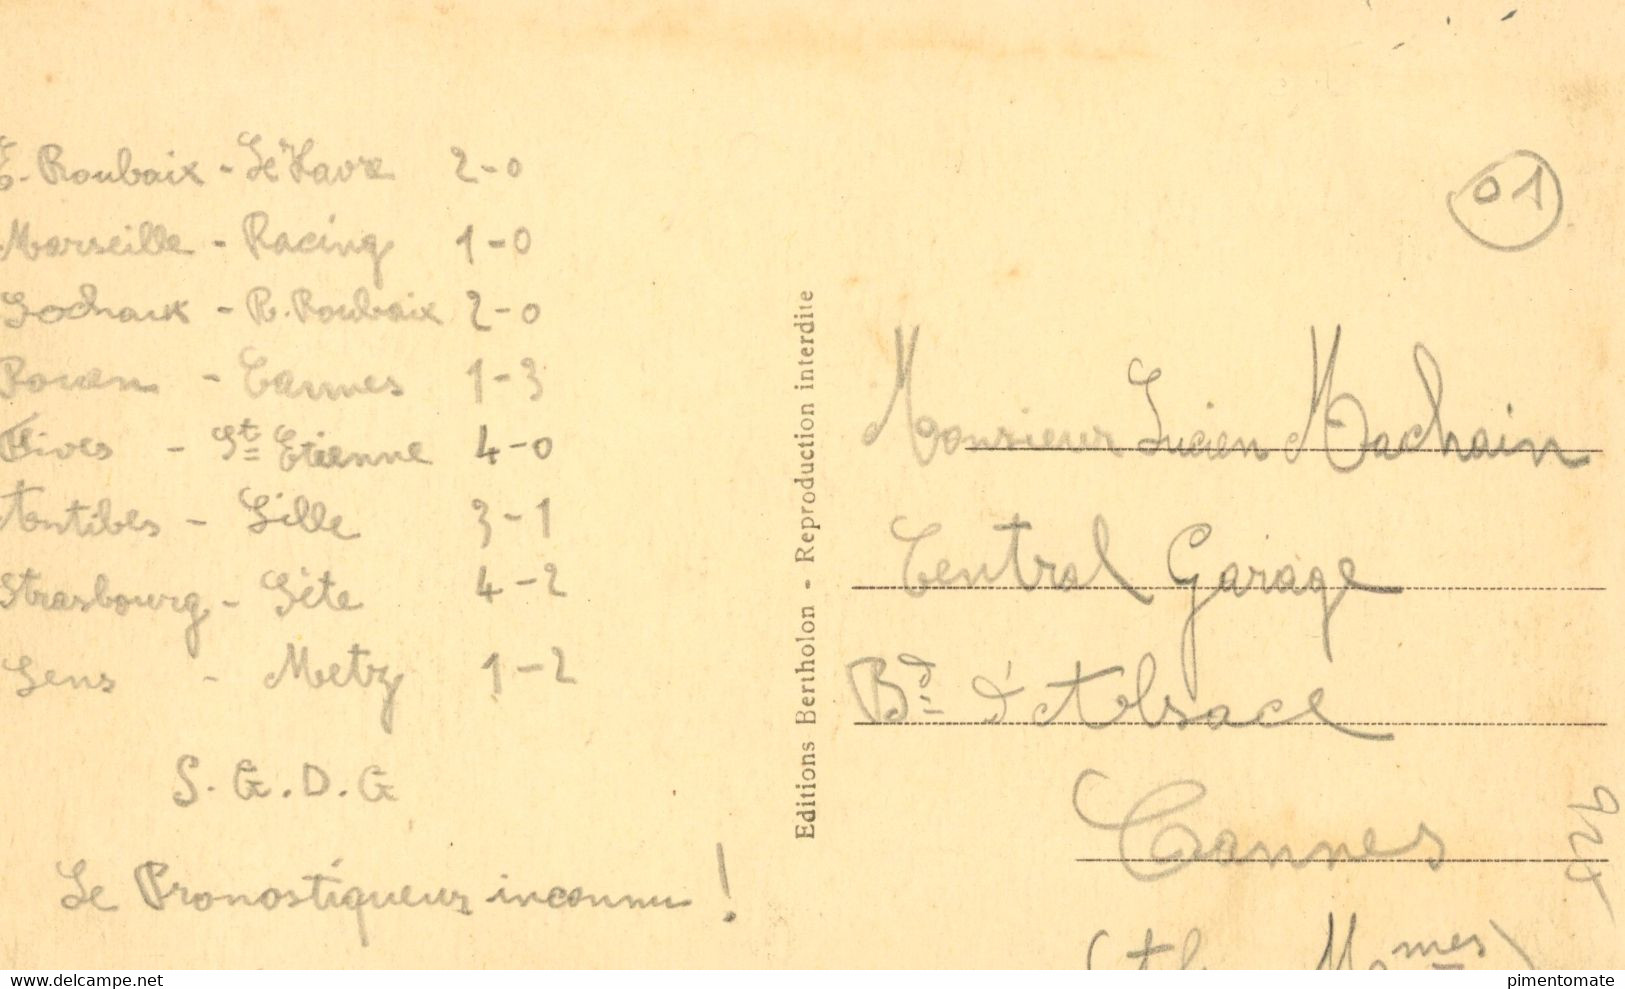 - Roubaix - Le Havre 2-0
Marseille - Racing 1-0
Sochaux - R. Roubaix 2-0
Rouen - Cannes 1-3
Fives - St Etienne 4-0
Antibes - Lille 3-1
Strasbourg - Sète 4-2
Lens - Metz 1-2
S.G.D.G
Le Pronostiqueur inconnu !
Editions Bertholon - Reproduction interdite
01
Monsieur Lucien Machain
Central Garage
Bd d'Alsace
Cannes
(Alpes Mmes)
delcampe.net
pimentomate